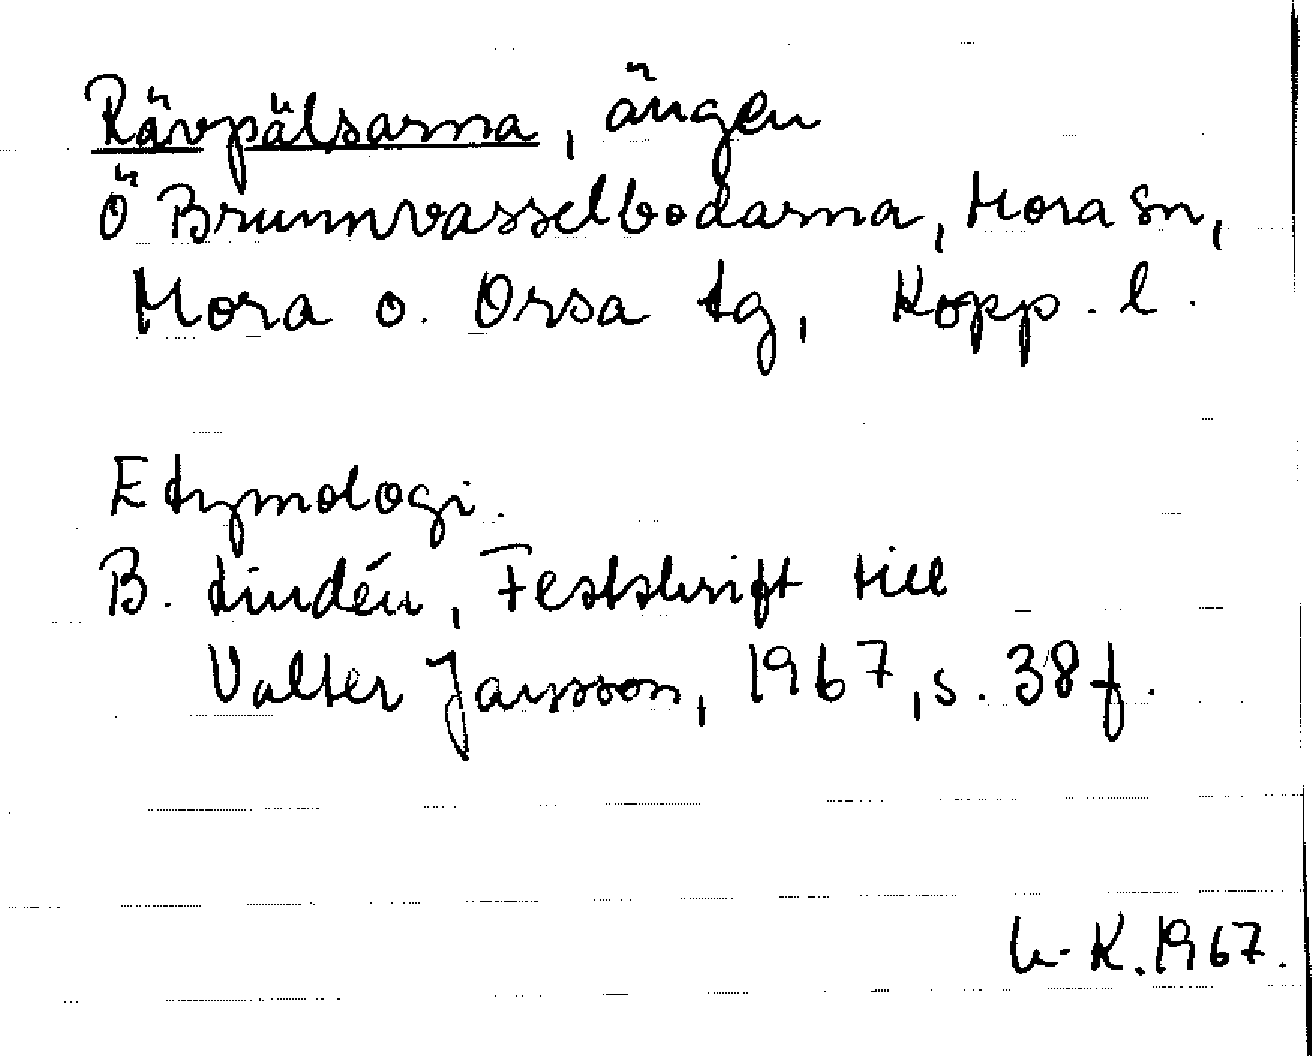 Rävpälsarna, ängen
Ö Brunnvasselbodarna, Mora sn,
Mora o. Orsa tg, Kopp. l.
Etymologi.
B. Lindén, Festskrift till
Valter Jansson, 1967, s. 38 f.
K. 1967.